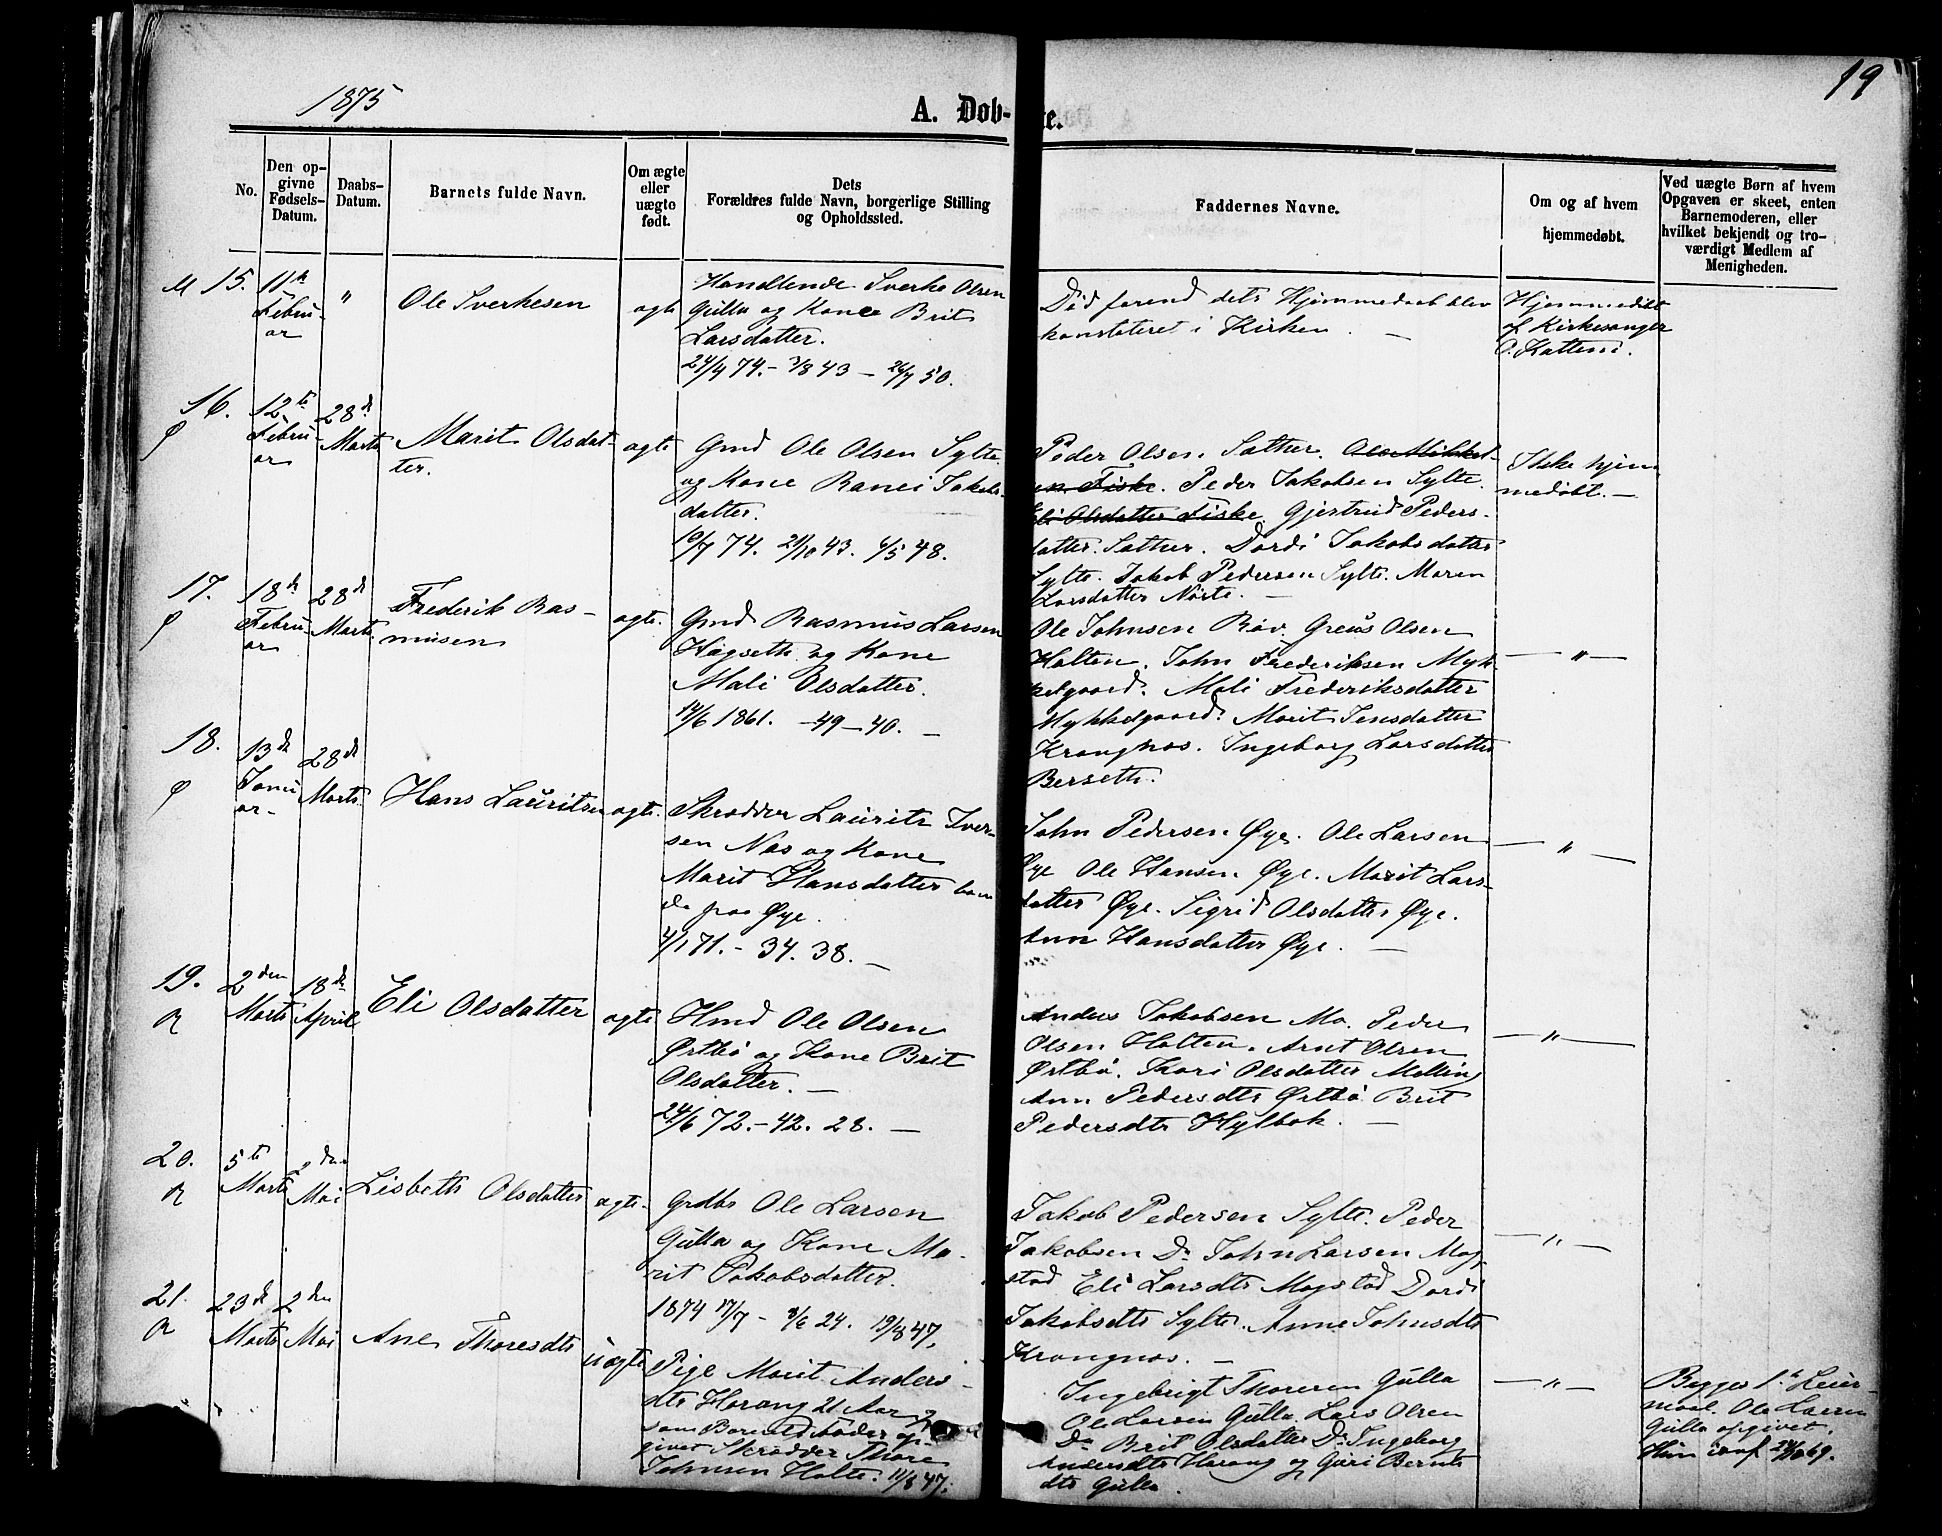 1875
19
A. Døb-
te.
No.
Den op-
givne
Fødsels-
Datum.
Daabs-
Datum.
Barnets fulde Navn.
Om ægte
eller
uægte
født.
Dets
Forældres fulde Navn, borgerlige Stilling
og Opholdssted.
Faddernes Navne.
Om og af hvem
hjemmedøbt.
Ved uægte Børn af hvem
Opgaven er skeet, enten
Barnemoderen, eller
hvilket bekjendt og tro-
værdigt Medlem af
Menigheden.
M 15.
11te
Febru-
ar
"
Ole Sverkesen
ægte
Handlende Sverke Olsen
Gülla og Kone Brit
Larsdatter.
24/4 74. - 3/8 43 - 26/7 50.
Død førend dets Hjemmedaab blev
konstateret i Kirken. —
Hjemmedøbt
af Kirkesanger
O. Kattem.
16.
12te
Febru-
ar
28de
Marts
Marit Olsdat-
ter.
ægte
Gmd Ole Olsen Sylte
og Kone Ranei Jakobs-
datter.
10/7 74. 21/10 43. 6/5 48.
Peder Olsen Sæther. Ole Mikkel-
sen Fiske. Peder Jakobsen Sylte.
Eli Olsdatter Fiske. Gjertrud Peders-
datter Sæther. Dordi Jakobsdatter
Sylte. Jakob Pedersen Sylte. Maren
Larsdatter Nørte. —
Ikke hjem-
medøbt. —
17.
18de
Febru-
ar
28de
Marts
Frederik Ras-
musen
ægte.
Gmd Rasmus Larsen
Hagseth og Kone
Mali Olsdatter.
14/6 1861. -49-40. —
Ole Johnsen Røv. Greus Olsen
Halten. John Frederiksen Myk-
kelgaard. Mali Frederiksdatter
Mykkelgaard. Marit Jensdatter
Krangnæs. Ingeborg Larsdatter
Berseth.
— " —
18.
13de
Janu-
ar
28de
Marts
Hans Lauritsen
ægte.
Skrædder Laurits Iver-
sen Næs og Kone
Marit Hansdatter boen-
de paa Øye.
4/1 71. - 34. 38. —
John Pedersen Øye. Ole Larsen
Øye Ole Hansen Øye. Marit Lars-
datter Øye. Sigrid Olsdatter Øye.
Ann Hansdatter Øye. —
— " —
19.
2den
Marts
18de
April
Eli Olsdatter
ægte
Hmd Ole Olsen
Ørtbø og Kone Brit
Olsdatter. —
24/6 72. - 42. 28. —
Anders Jakobsen Mo. Peder
Olsen Halten. Arnt Olsen
Ørtbø. Kari Olsdatter Melling
Ann Pedersdtr Ørtbø Brit
Pedersdtr Hylbak. —
— " —
20.
5te
Marts
2den
Mai
Lisbeth Olsdatter
ægte.
Grdbr Ole Larsen
Gülla og Kone Ma-
rit Jakobsdatter.
1874 17/7 - 3/6 24. 19/8 47.
Jakob Pedersen Sylte. Peder
Jakobsen Do John Larsen Mag-
stad Eli Larsdtr Magstad Dordi
Jakobsdtr Sylte. Anne Johnsdtr
Krangnæs. —
— " —
21.
23de
Marts
2den
Mai
Ane Thoresdtr
uægte
Pige Marit Anders-
dtr Harang 21 Aar og
som Barnefader op-
givet Skrædder Thore
Johnsen Holte. 11/8 47.
Ingebrigt Thoresen Gülla
Ole Larsen Gülla. Lars Olsen
Do Brit Olsdatter Do Ingeborg
Andersdtr Harang og Guri Bernts
dtr Gülla.
— " —
Begges 1ste Leier-
maal. Ole Larsen
Gülla opgivet.
Hun conf. 69.